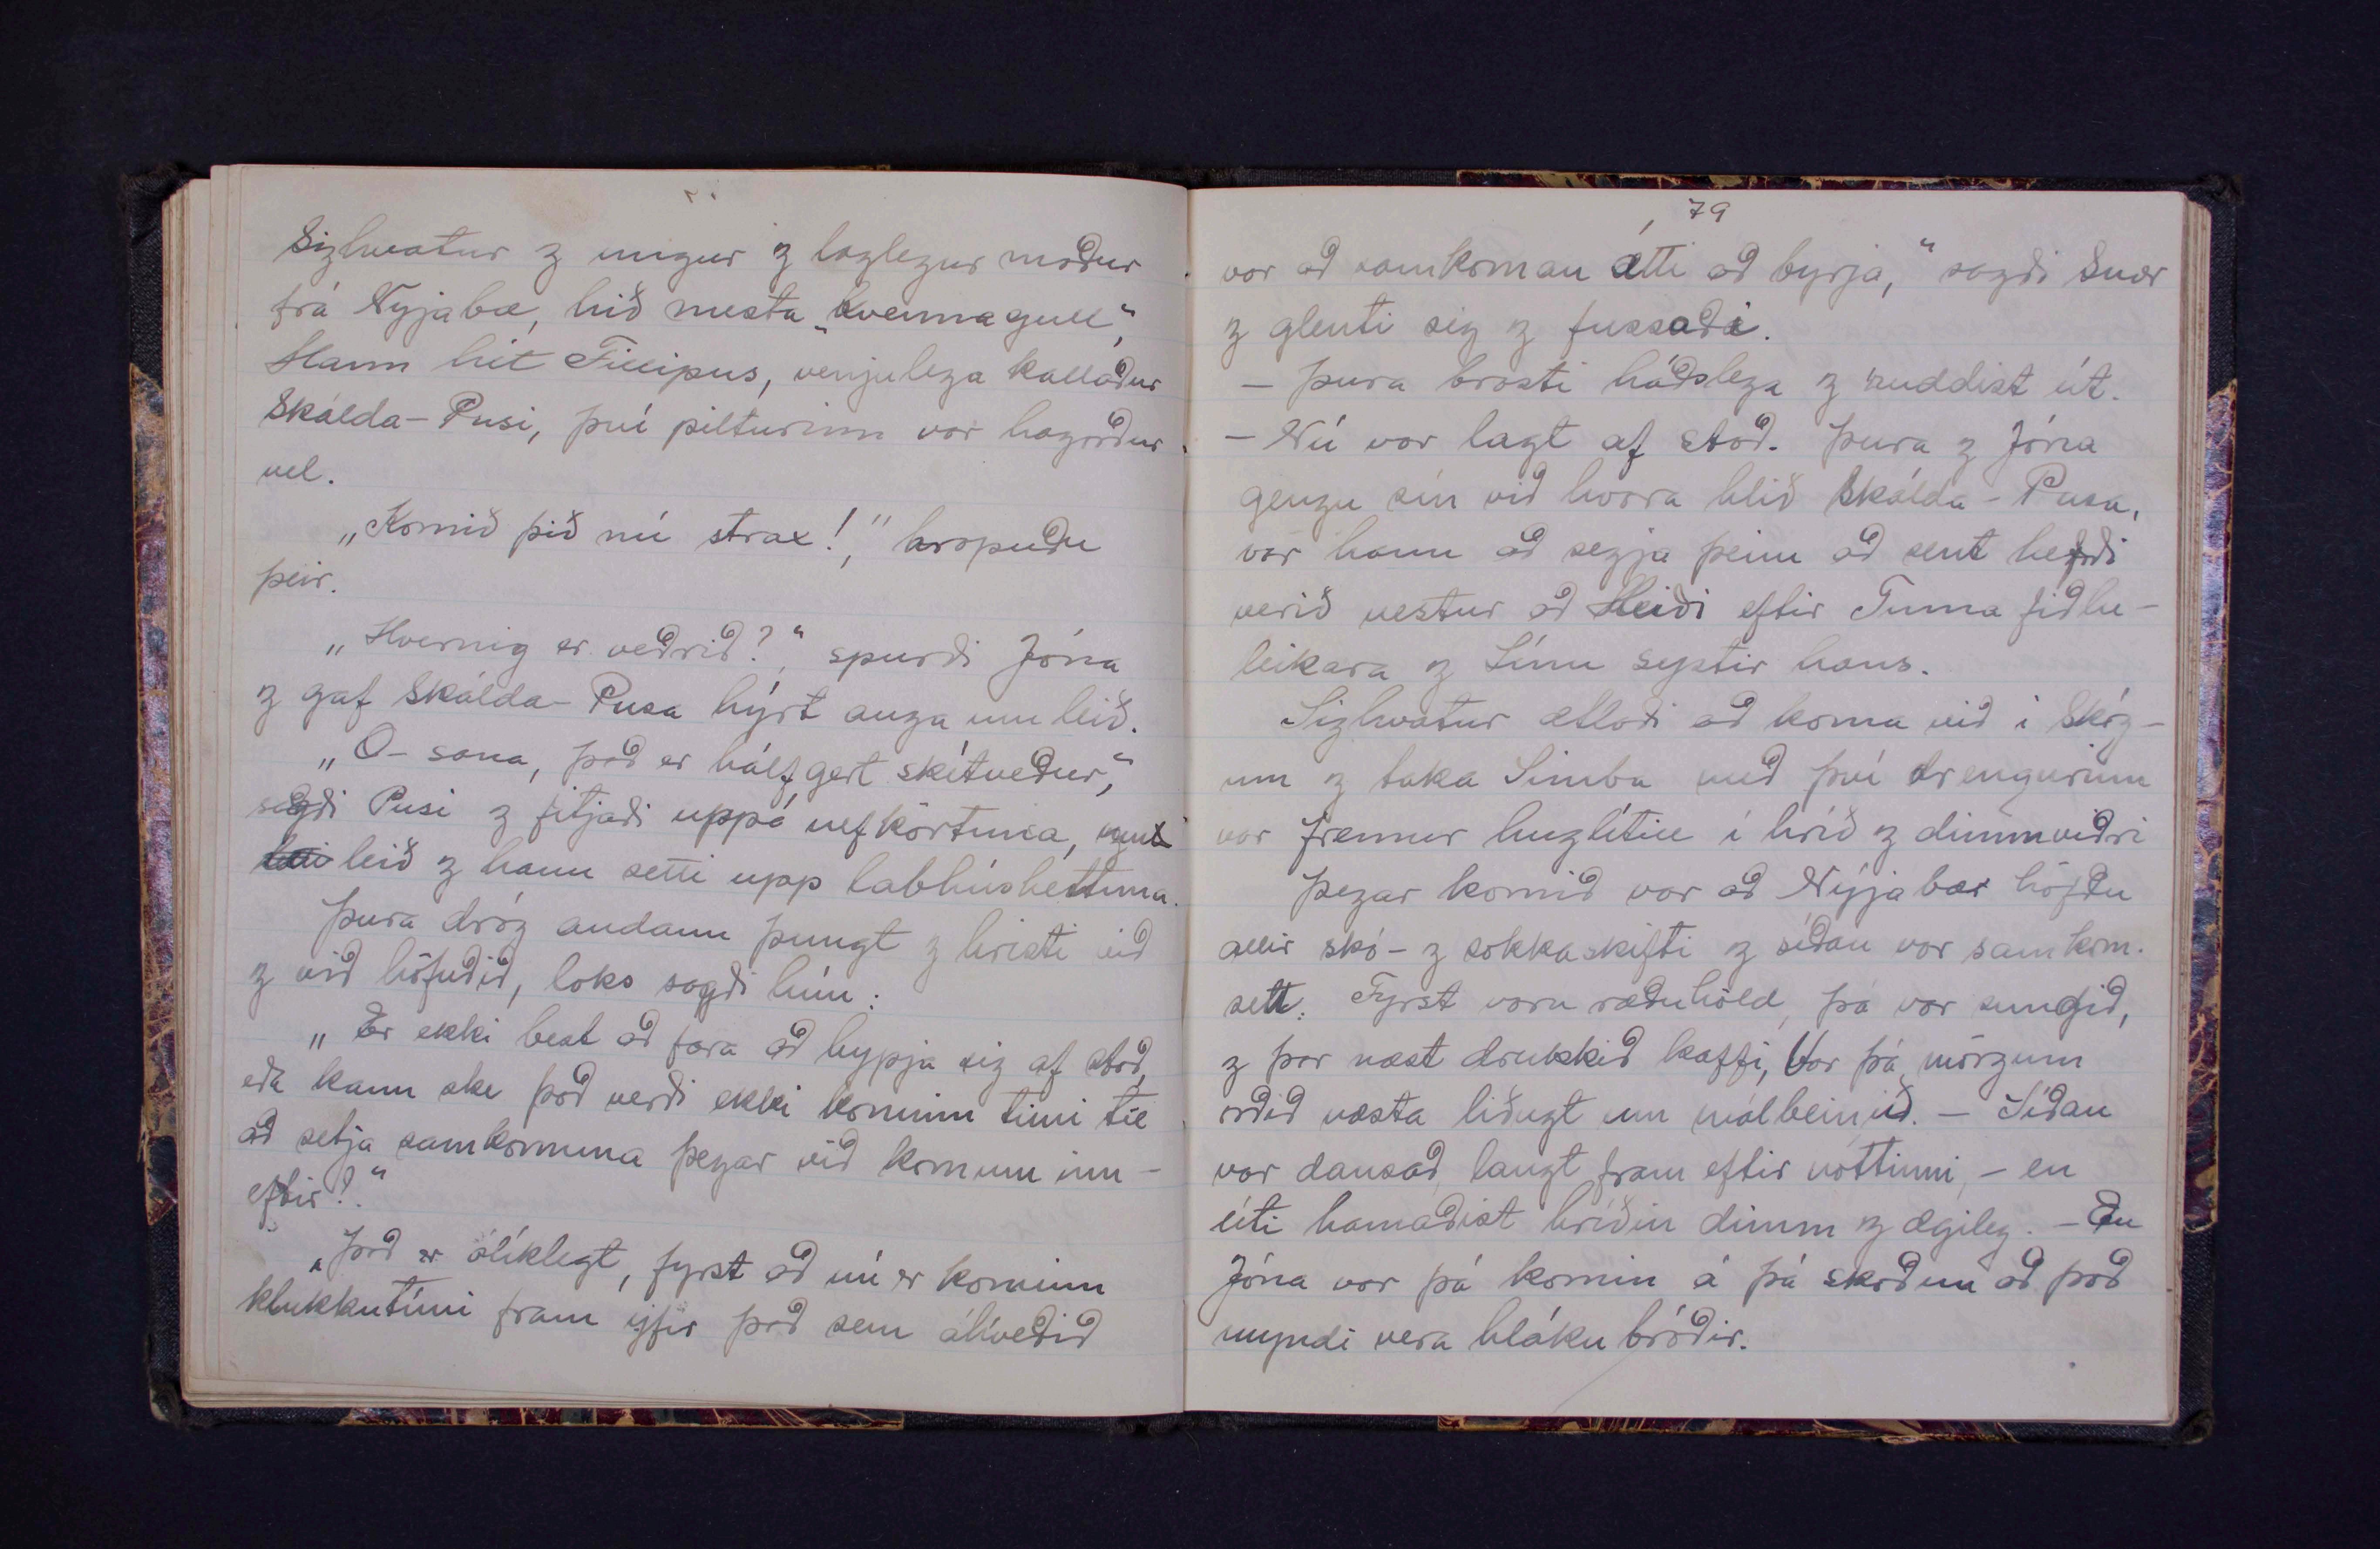 Sighvatur og ungur og laglegur maður
frá Nýjabæ, hið mesta „kvennagull“,
Hann hét Fillipus, venjulega kallaður
Skálda-Pusi, því pilturinn var hagorður
vel.
„Komið þið nú strax!,“ hropuðu
þeir.
„Hvernig er veðrið?“, spurði Jóna
og gaf Skálda-Pusa hýrt auga um leið.
„O-sona, það er hálfgert skítveður,“
sagði Pusi og fitjaði uppá nefkörtuna, um
leið og hann setti upp labhúshettuna.
Þura dróg andann þungt og hristi við
og við höfuðið, loks sagði hún:
„Er ekki best að fara að hypja sig af stað,
eða kann ske það verði ekki kominn timi til
að setja samkomuna þegar við komum inn-
eftir?.“
„Það er ólíklegt, fyrst að nú er kominn
klukkutími fram yfir það sem ákveðið
79
var að samkoman ætti að byrja,“ sagði Snær
og glenti sig og fussaði.
- Þura brosti háðslega og ruddist út.
- Nú var lagt af stað. Þura og Jóna
gengu sín við hvora hlið Skálda-Pusa,
var hann að segja þeim að sent hefði
verið vestur að Heiði eftir Tuma fiðlu-
leikara og Línu systir hans.
Sighvatur ætlaði að koma við i Skóg-
um og taka Simba með því drengurinn
var fremur huglítill í hríð og dimmviðri
Þegar komið var að Nýjabæ höfðu
allir skó- og sokkaskifti og síðan var samkom.
sett. Fyrst voru ræðuhöld, þá var sungið,
og þar næst drukkið kaffi, Var þá mörgum
orðið næsta liðugt um málbeinið. - Síðan
var dansað langt fram eftir nóttinni, - en
úti hamaðist hríðin dimm og ægileg. - En
Jóna var þá komin á þá skoðun að það
myndi vera hláku bróðir.